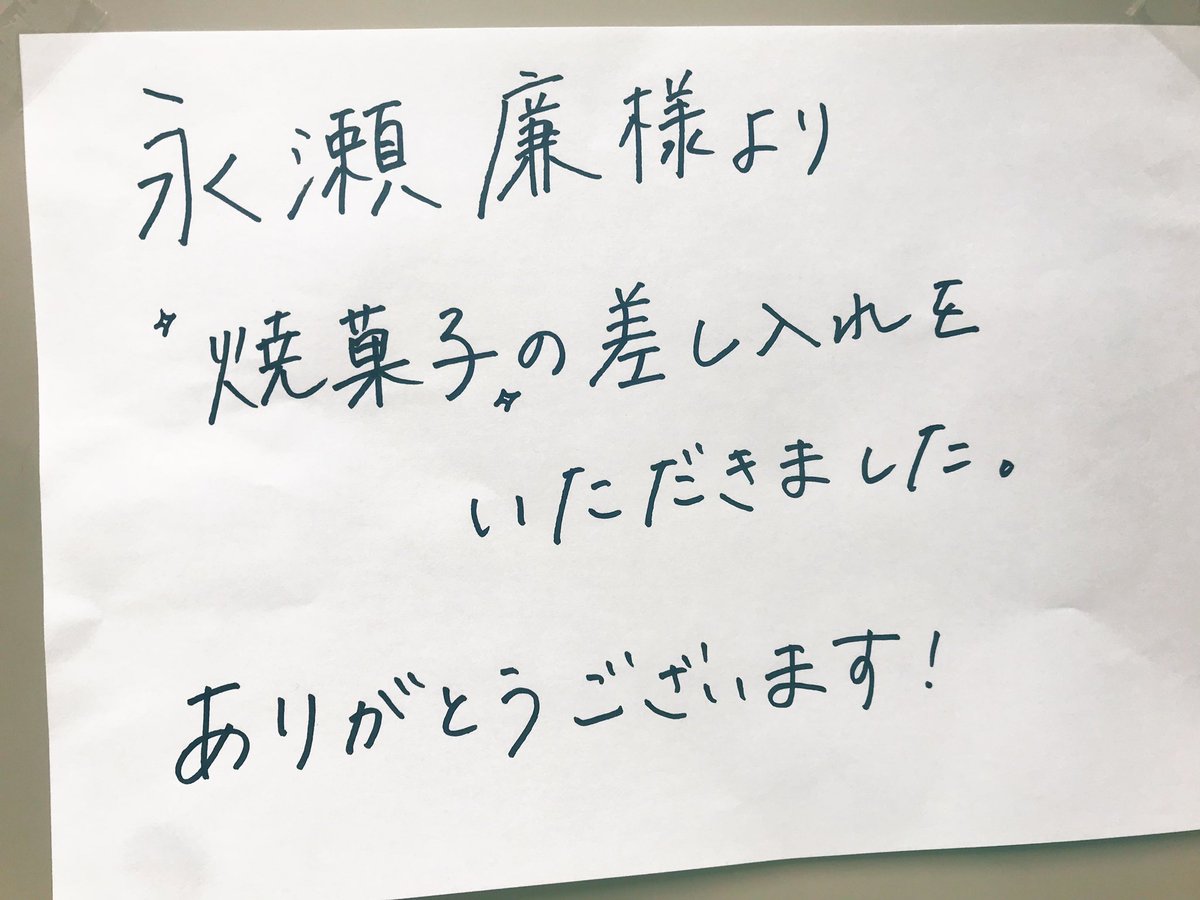 永瀬廉様より
焼菓子の差し入れを
いただきました。
ありがとうございます!